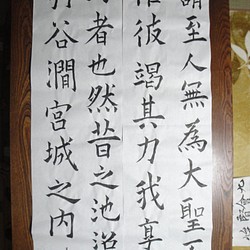 謂至人無為大聖不
作彼竭其力我享
功者也然昔之池沼
引谷澗宮城之内